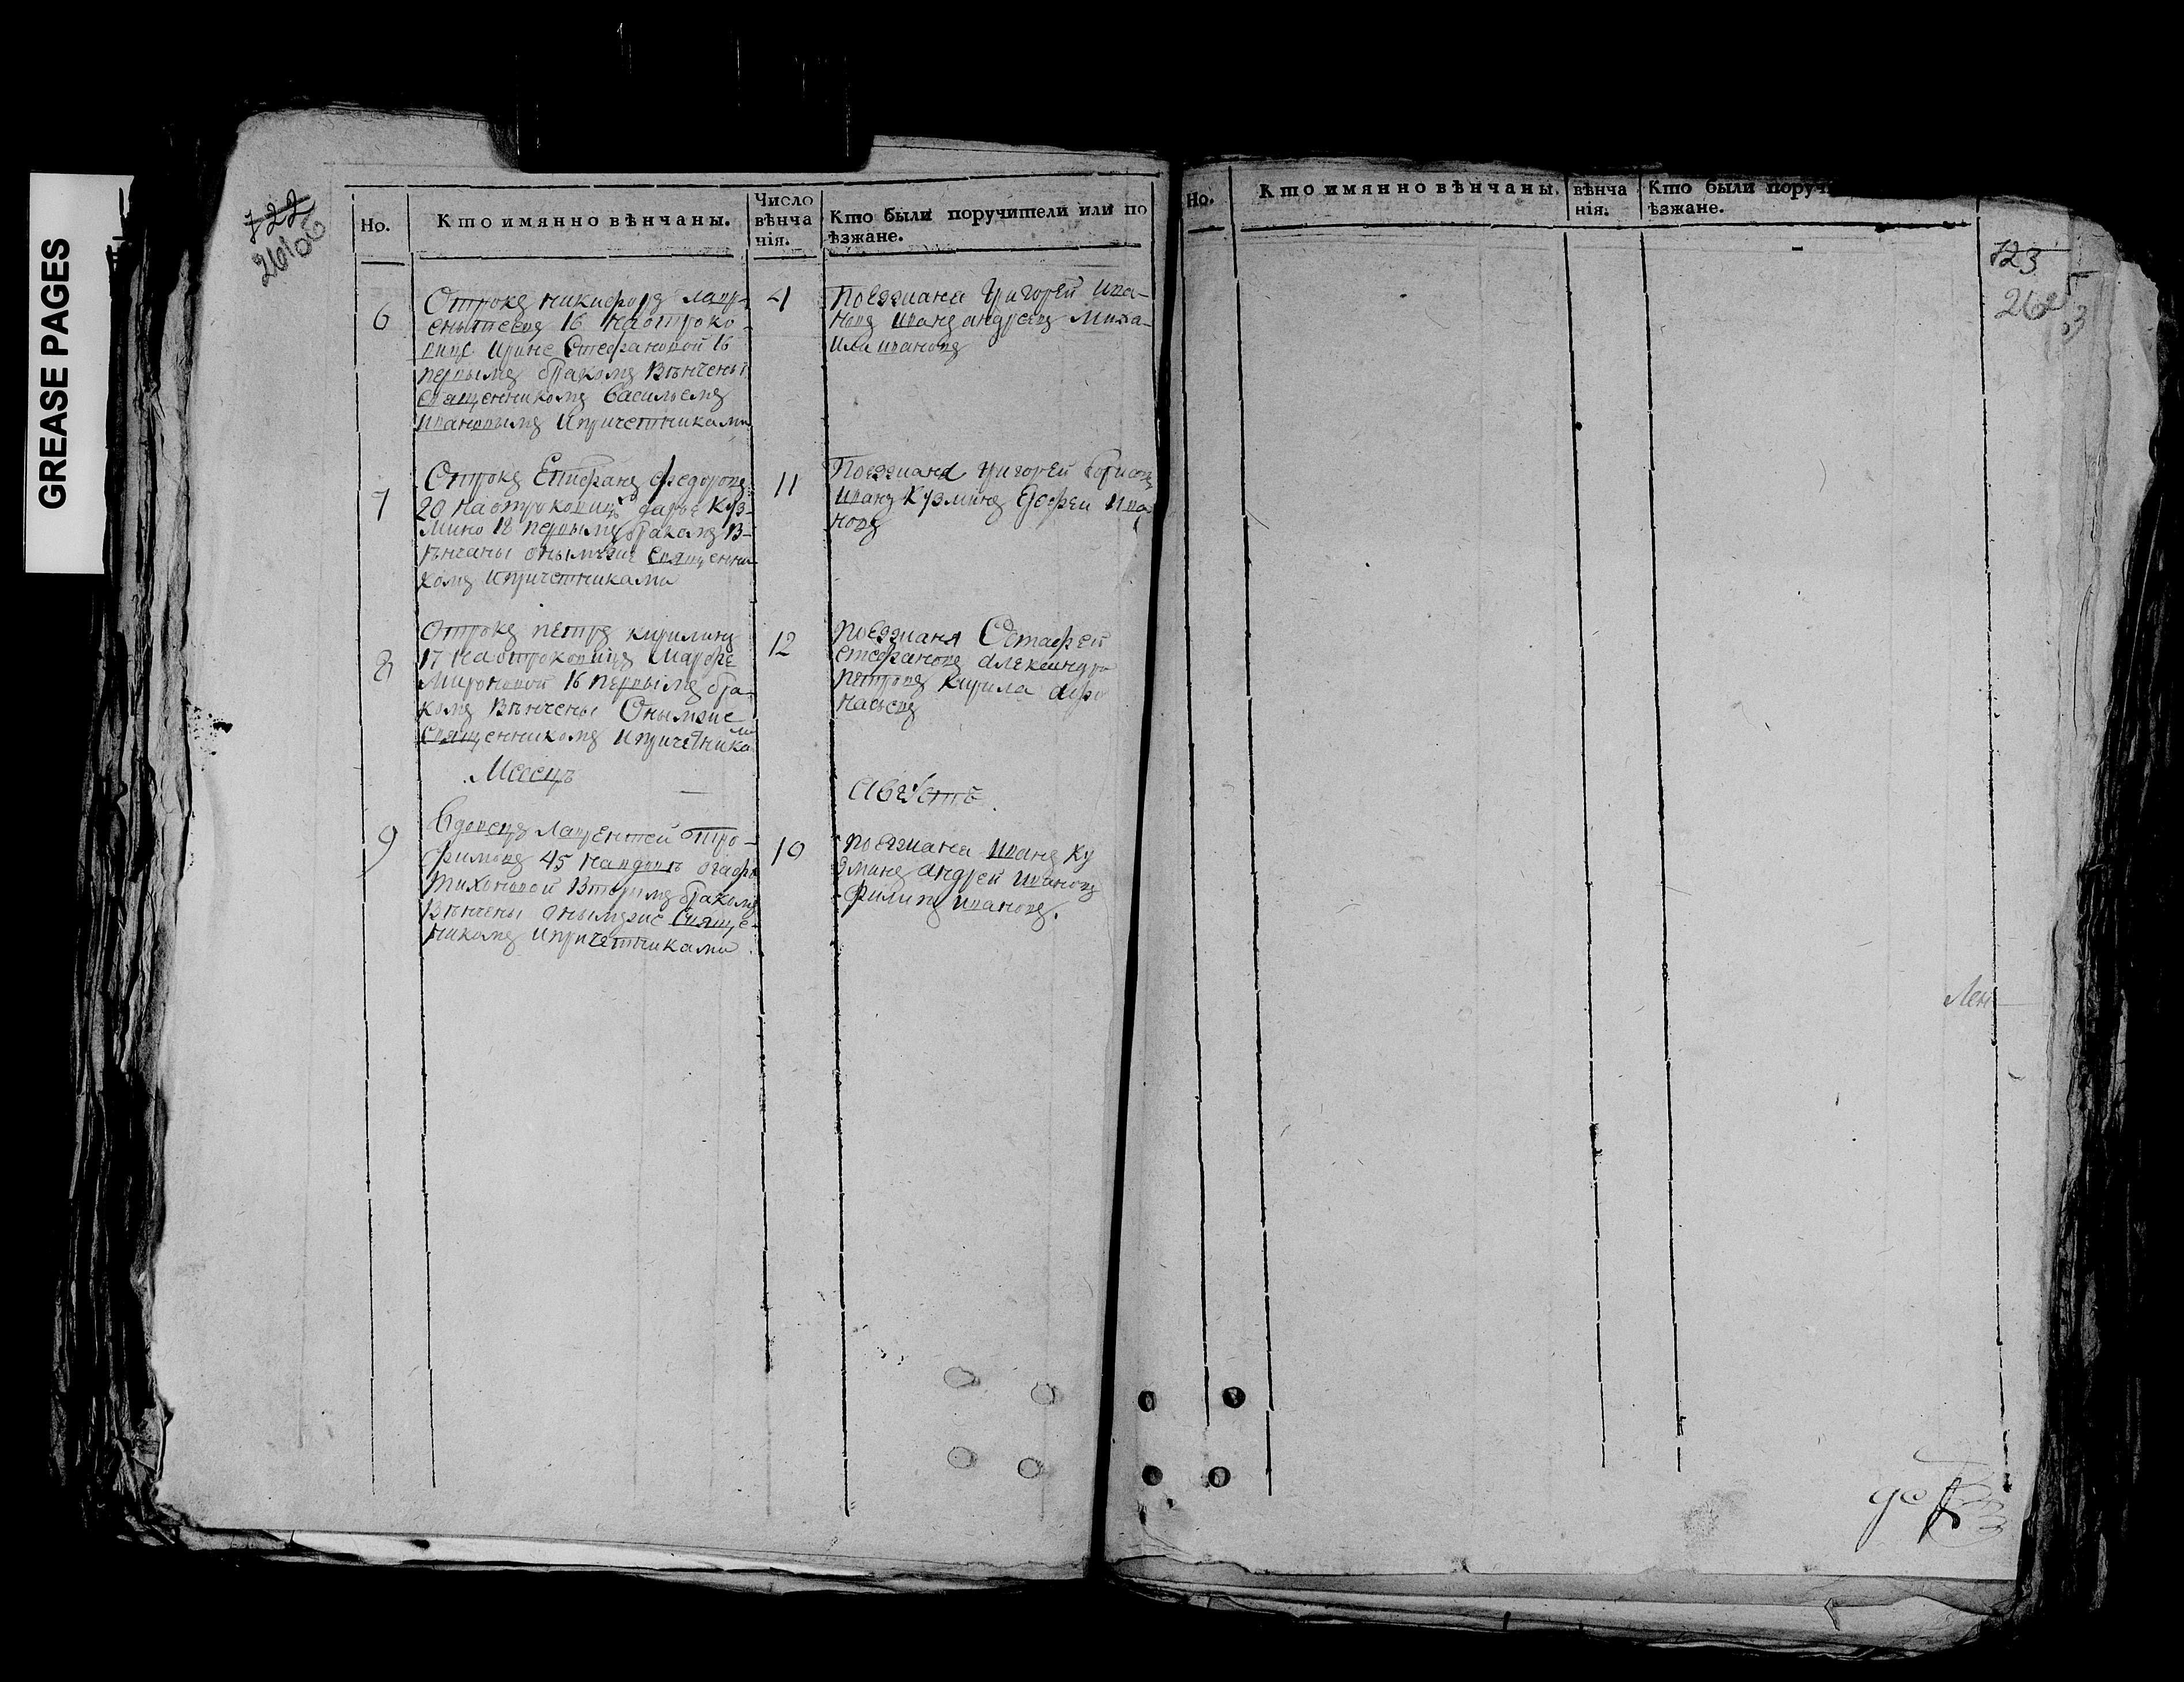 GREASE PAGES
722
Но.
Кто имянно вѣнчаны.
Число
вѣнча
нія.
Кто были поручители или по
ѣзжане.
6
Отрокъ никифоръ лавр-
ентьевъ 16 наотроко-
вице ирине Стефановой 16
первымъ бракомъ Вѣнчены
священникомъ Васильемъ
ивановымъ ипричетниками
4
Поезжана Григорей ива-
новъ иванъ андреевъ миха-
ила ивановъ
7
Отрокъ Епифанъ федоровъ
20 наотроковицѣ дарье Куз-
мино 18 первымъ бракомъ В-
ѣнчаны онымъже священни
комъ ипричетниками
11
Поезжана Григорей борисовъ
иванъ Кузминъ Ерофеи ива
новъ
8
Отрокъ петръ кирилинъ
17 наотроковицъ Марфе
Мироновой 16 первымъ бра-
комъ Вѣнчены Онымже
священникомъ ипричетника
ми
12
поезжаня Остафей
стефановъ александра
петровъ Кирила афо
насьевъ
Месецъ
Августъ
9
Вдовецъ лаврентей тро-
фимовъ 45 навдовѣ
тихоновой Вторымъ бракомъ
Вѣнчены онымъже Свяще-
никомъ ипричетниками
10
поезжана иванъ Ку
зминъ андрей ивановъ
Филипъ ивановъ.
Но.
Кто имянно вѣнчаны.
вѣнча
нія.
Кто были поручи
ѣзжане.
123